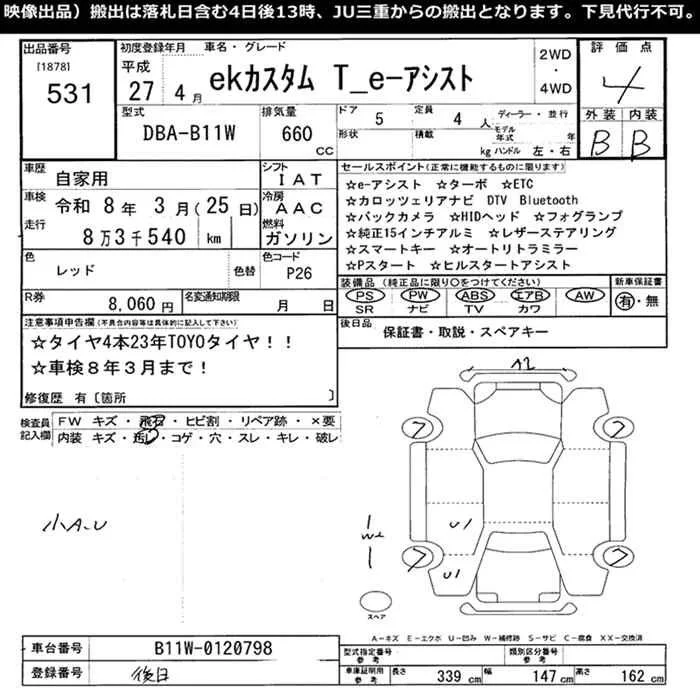 映像出品）搬出は落札日含む4日後13時、JU三重からの搬出となります。下見代行不可。
出品番号 初度登録年月 車名・グレード 2WD・4WD 評価点
[1878] 531 平成 27 4月 ekカスタム T_e-アシスト 4
型式 排気量 ドア 5 定員 4人 ディーラー・並行 外装 内装
DBA-B11W 660 CC 形状 積載 kg モデル年式 年 ハンドル 左・右 B B
車歴 自家用 シフト IAT セールスポイント(正常に機能するものに限ります)
車検 令和 8年 3月(25日) 冷房 AAC ☆e-アシスト ☆ターボ ☆ETC
☆カロッツェリアナビ DTV Bluetooth
走行 8万3千540 km 燃料 ガソリン ☆バックカメラ ☆HIDヘッド ☆フォグランプ
☆純正15インチアルミ ☆レザーステアリング
☆スマートキー ☆オートリトラミラー
色 レッド 色替 色コード P26 ☆Pスタート ☆ヒルスタートアシスト
装備品 (純正品に限り○をつけてください) 新車保証書
R券 8,060円 名変通知期限 月 日 PS PW ABS エアB AW 有・無
SR ナビ TV カワ
注意事項申告欄(不具合内容等は具体的に記入して下さい) 後日品 保証書・取説・スペアキー
☆タイヤ4本23年TOYOタイヤ！！
☆車検8年3月まで！
修復歴 有〔箇所 〕
検査員記入欄 FW キズ・飛石・ヒビ割・リペア跡・×要
内装 キズ・汚レ・コゲ・穴・スレ・キレ・破レ
A2
7 7
小A.U
U1
W2
7 7
U1
スペア
A-キズ E-エクボ U-凹み W-補修跡 S-サビ C-腐食 XX-交換済
車台番号 B11W-0120798 型式指定番号 参考 類別区分番号 参考
登録番号 後日 車庫証明用 参考 長さ 339 cm 幅 147 cm 高さ 162 cm